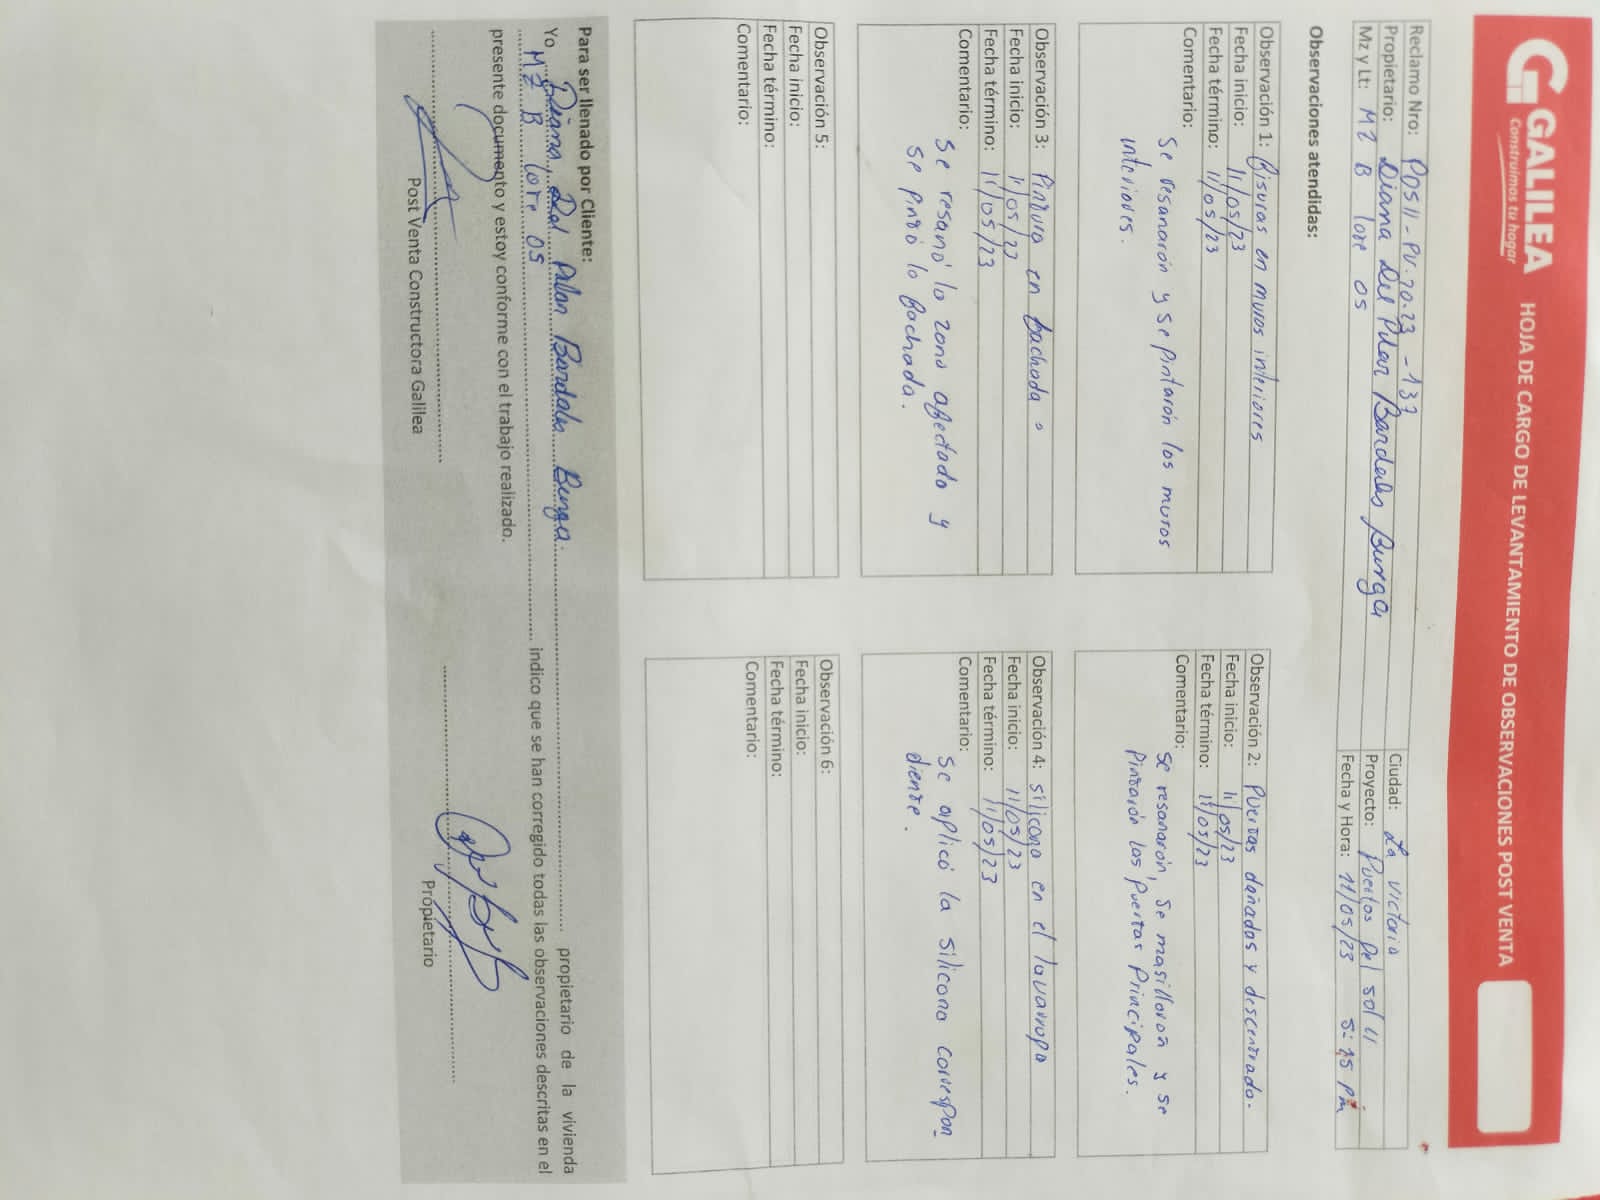 GALILEA
Construimos tu hogar
HOJA DE CARGO DE LEVANTAMIENTO DE OBSERVACIONES POST VENTA
Reclamo Nro: PDS II - PV. 70.23 - 137
Propietario: Diana Del Pilar Bardales Burga
Mz y Lt: MZ B lote 05
Ciudad: La victoria
Proyecto: Puertas Del sol II
Fecha y Hora: 11/05/23 5:15 Pm
Observaciones atendidas:
Observación 1: Fisuras en muros interiores
Fecha inicio: 11/05/23
Fecha término: 11/05/23
Comentario:
Se resanarón y se pintarón los muros
interiores.
Observación 2: Puertas dañadas y descentrado.
Fecha inicio: 11/05/23
Fecha término: 11/05/23
Comentario:
se resanarón, se masillaron y se
pintarón las puertas Principales.
Observación 3: Pintura en fachada.
Fecha inicio: 11/05/23
Fecha término: 11/05/23
Comentario:
Se resanó la zona afectada y
se pintó la fachada.
Observación 4: silicona en el lavaropa
Fecha inicio: 11/05/23
Fecha término: 11/05/23
Comentario:
Se aplicó la silicona correspon-
diente.
Observación 5:
Fecha inicio:
Fecha término:
Comentario:
Observación 6:
Fecha inicio:
Fecha término:
Comentario:
Para ser llenado por Cliente:
Yo Diana Del Pilar Bardales Burga propietario de la vivienda
MZ B lote 05 indico que se han corregido todas las observaciones descritas en el
presente documento y estoy conforme con el trabajo realizado.
Post Venta Constructora Galilea
Propietario